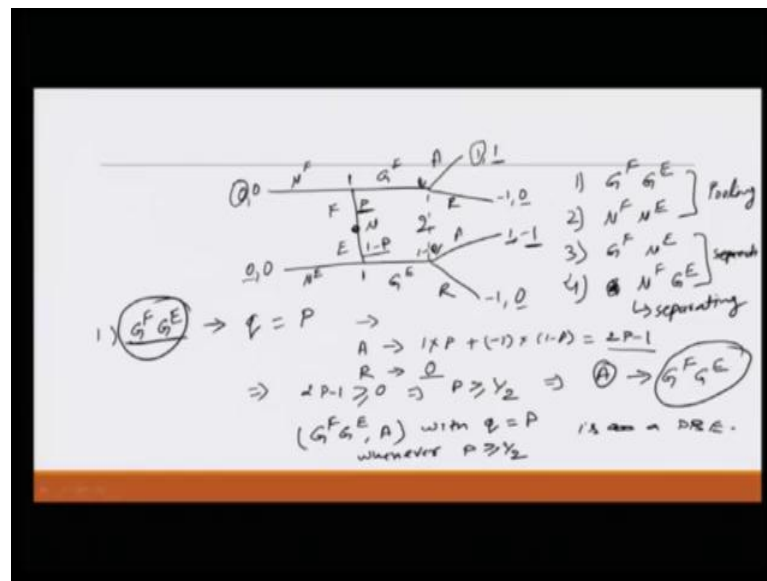 0,0 N^F 1 G^F A 1,1
R -1,0
F P
N 2
E 1-P A 1,-1
0,0 N^E 1 G^E
R -1,0
1) G^F G^E ] Pooling
2) N^F N^E
3) G^F N^E
4) N^F G^E
↳ separating
1) G^F G^E → q = P →
A → 1×P + (-1)×(1-P) = 2P-1
R → 0
⇒ 2P-1 ≥ 0 ⇒ P ≥ 1/2 ⇒ A → G^F G^E
(G^F G^E, A) with q = P is a PBE.
whenever P ≥ 1/2